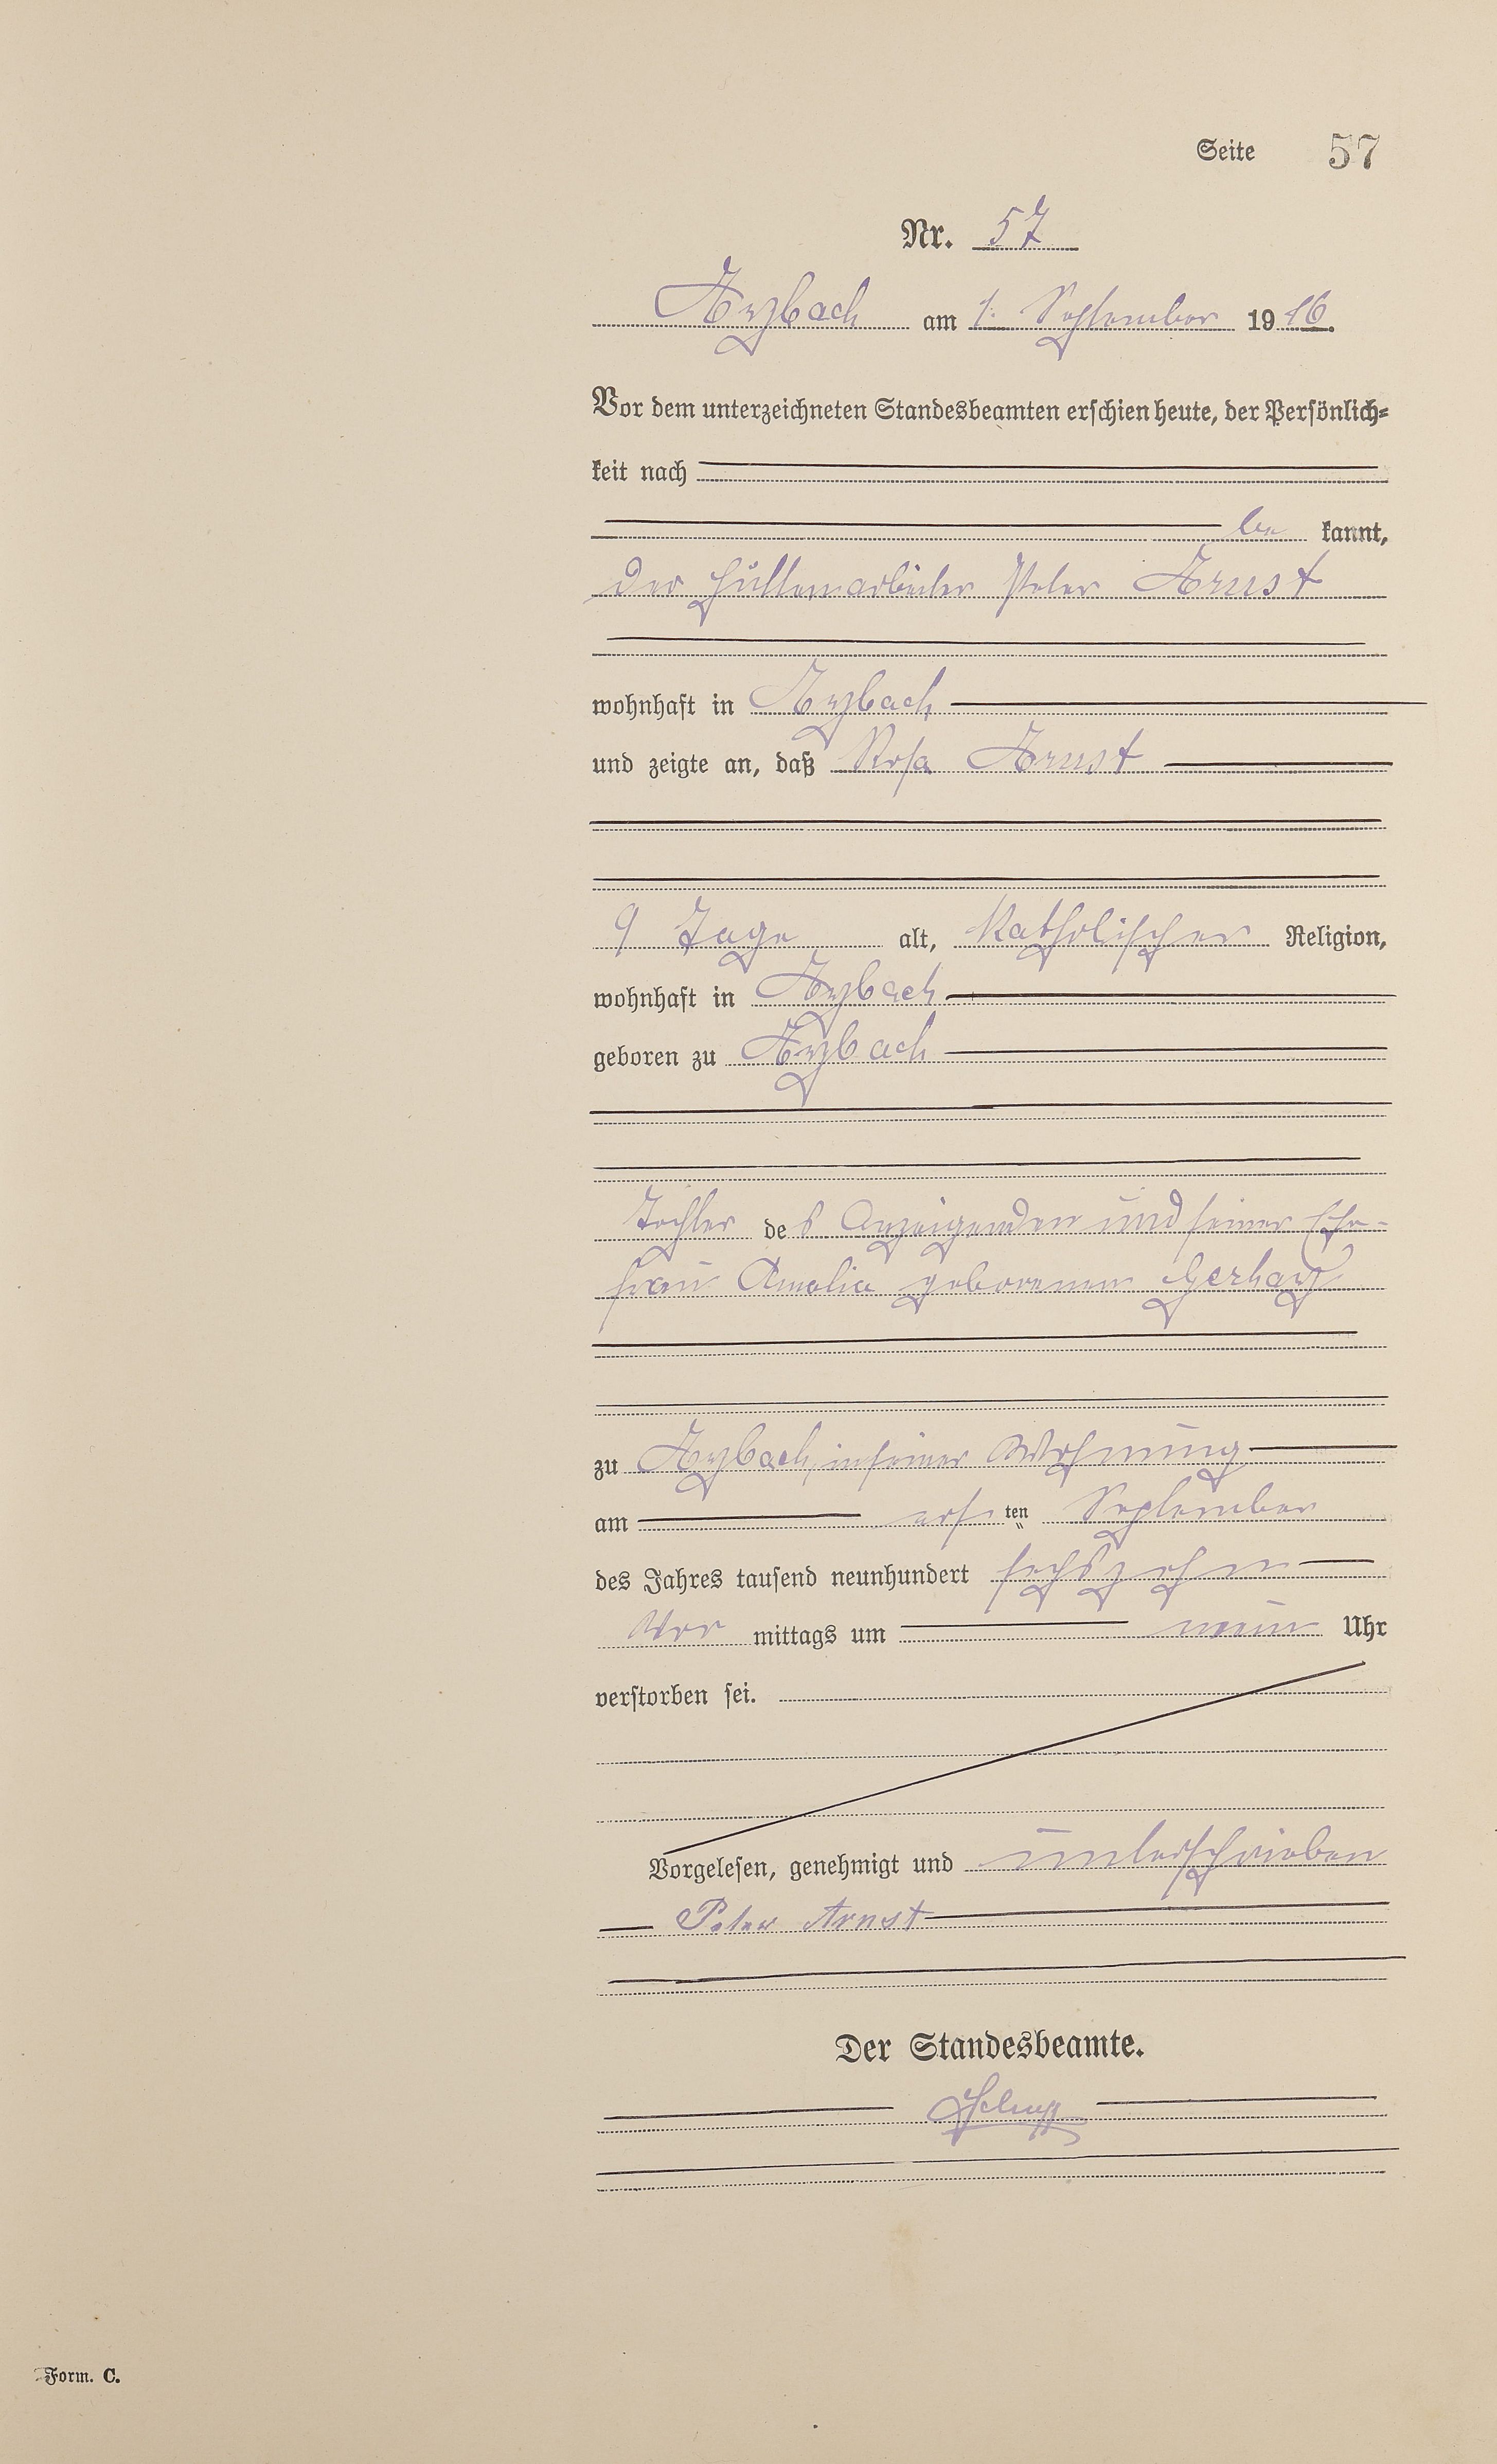 Seite 57
Nr. 57
Arzbach am 1. September 1916.
Vor dem unterzeichneten Standesbeamten erschien heute, der Persönlich-
keit nach
be kannt,
der Hüttenarbeiter Peter Arnst
wohnhaft in Arzbach
und zeigte an, daß Rosa Arnst
9 Tage alt, katholischer Religion,
wohnhaft in Arzbach
geboren zu Arzbach
Tochter des Anzeigenden und seiner Ehe-
frau Amalia geborenen Gerharz
zu Arzbach, in seiner Wohnung
am ersten September
des Jahres tausend neunhundert sechszehn
Vor mittags um neun Uhr
verstorben sei.
Vorgelesen, genehmigt und unterschrieben
Peter Arnst
Der Standesbeamte.
Form. C.